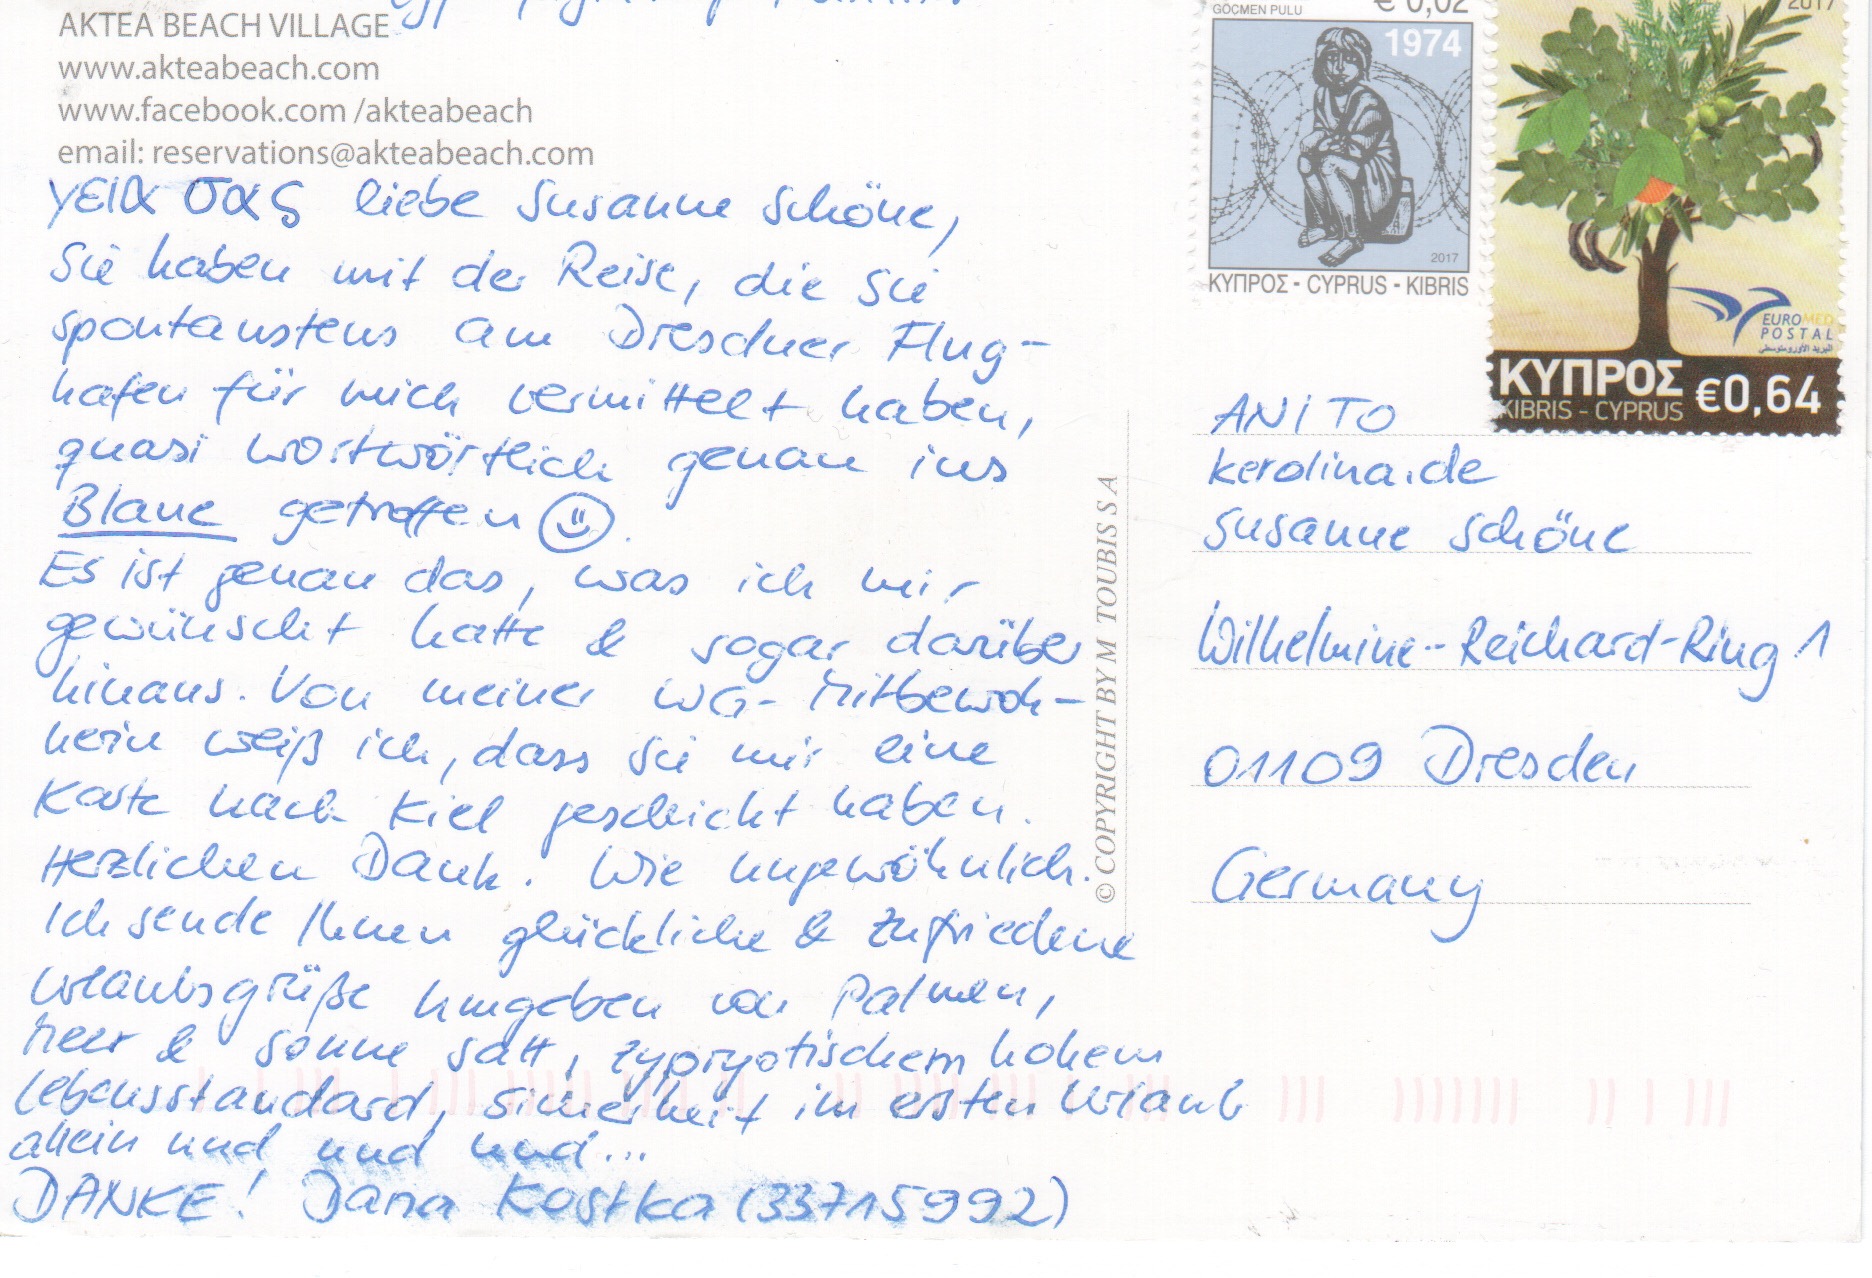 AKTEA BEACH VILLAGE
www.akteabeach.com
www.facebook.com /akteabeach
email: reservations@akteabeach.com
γεια σας liebe Susanne Schöne,
Sie haben mit der Reise, die Sie
spontanstens am Dresdner Flug-
hafen für mich vermittelt haben,
quasi wortwörtlich genau ins
Blaue getroffen
Es ist genau das, was ich mir
gewünscht hatte & sogar darüber
hinaus. Von meiner WG-Mitbewoh-
nerin weiß ich, dass Sie mir eine
Karte nach Kiel geschickt haben.
Herzlichen Dank. Wie ungewöhnlich.
Ich sende Ihnen glückliche & zufriedene
Urlaubsgrüße umgeben von Palmen,
Meer & Sonne satt, zypryotischem hohem
Lebensstandard, Sicherheit im ersten Urlaub
allein und und und...
DANKE! Dana Kostka (33715992)
© COPYRIGHT BY M TOUBIS S A
GÖÇMEN PULU
€ 0,02
1974
2017
ΚΥΠΡΟΣ - CYPRUS - KIBRIS
2017
EUROMED
POSTAL
البريد الأورومتوسطي
ΚΥΠΡΟΣ
KIBRIS - CYPRUS
€0,64
ANITO
kerolina.de
Susanne Schöne
Wilhelmine-Reichard-Ring 1
01109 Dresden
Germany